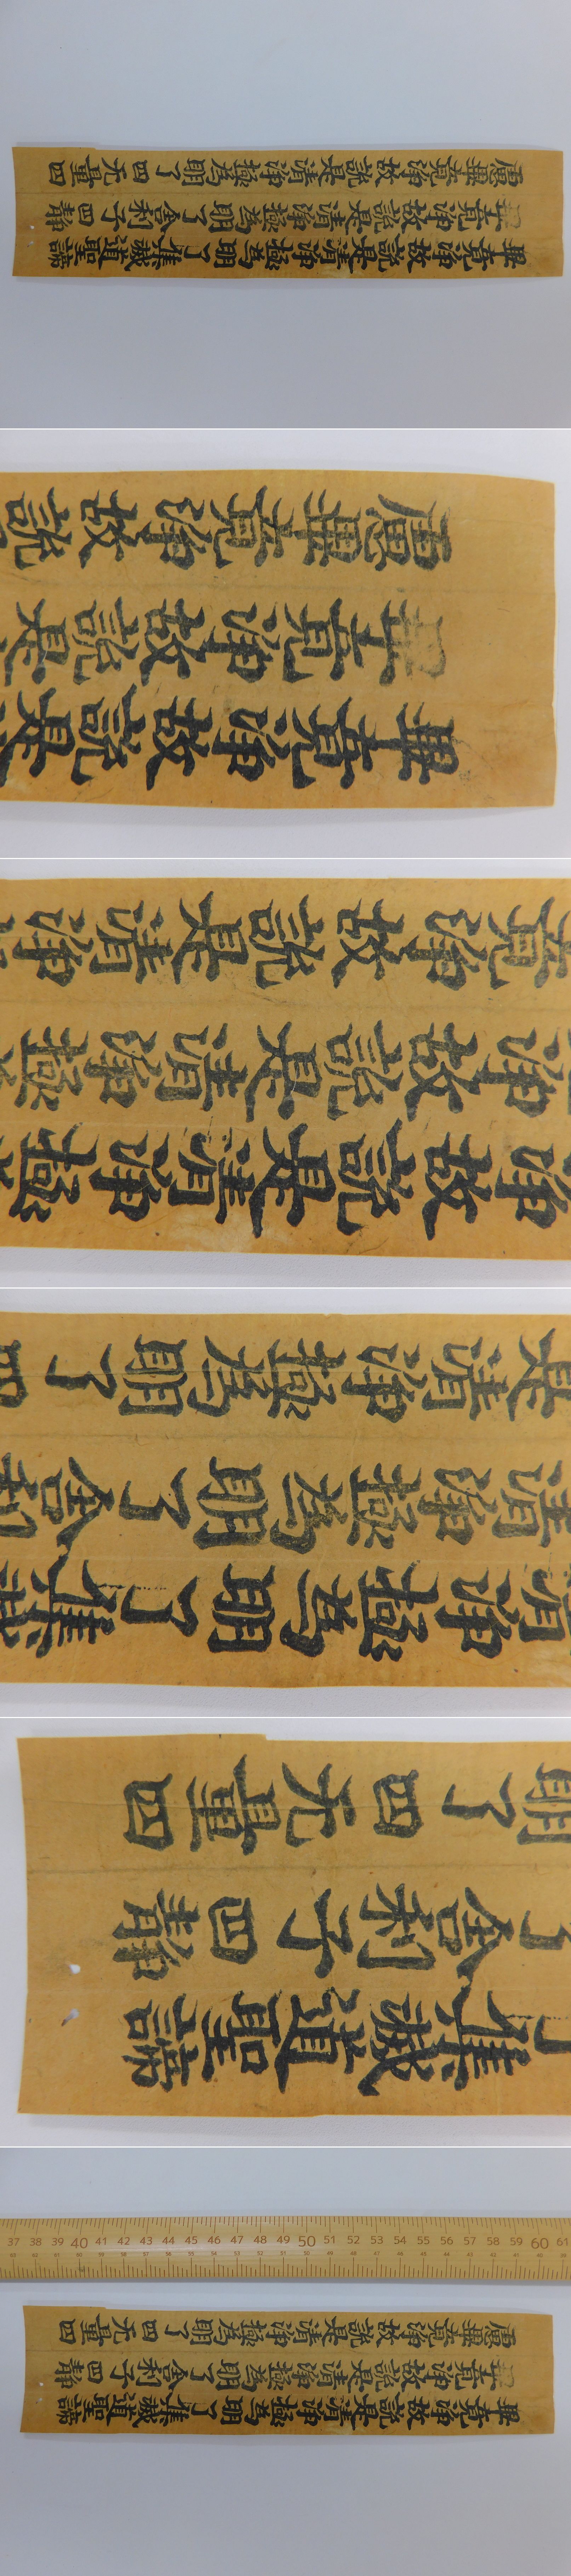 畢竟淨故說是清淨極為明了集滅道聖諦
畢竟淨故說是清淨極為明了舍利子四靜
慮畢竟淨故說是清淨極為明了四无量四
37 38 39 40 41 42 43 44 45 46 47 48 49 50 51 52 53 54 55 56 57 58 59 60 61